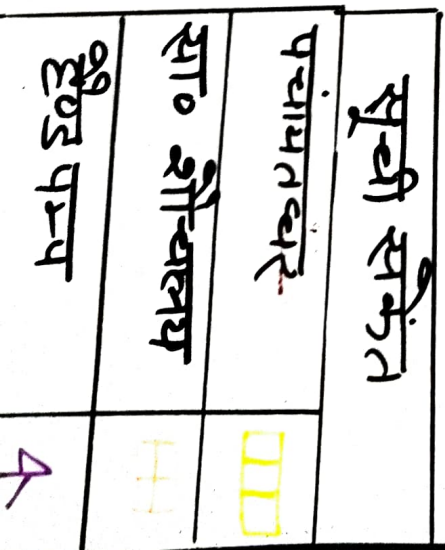 सूची संकेत
पंचायतघर
सा० शौचालय
हैण्डपम्प